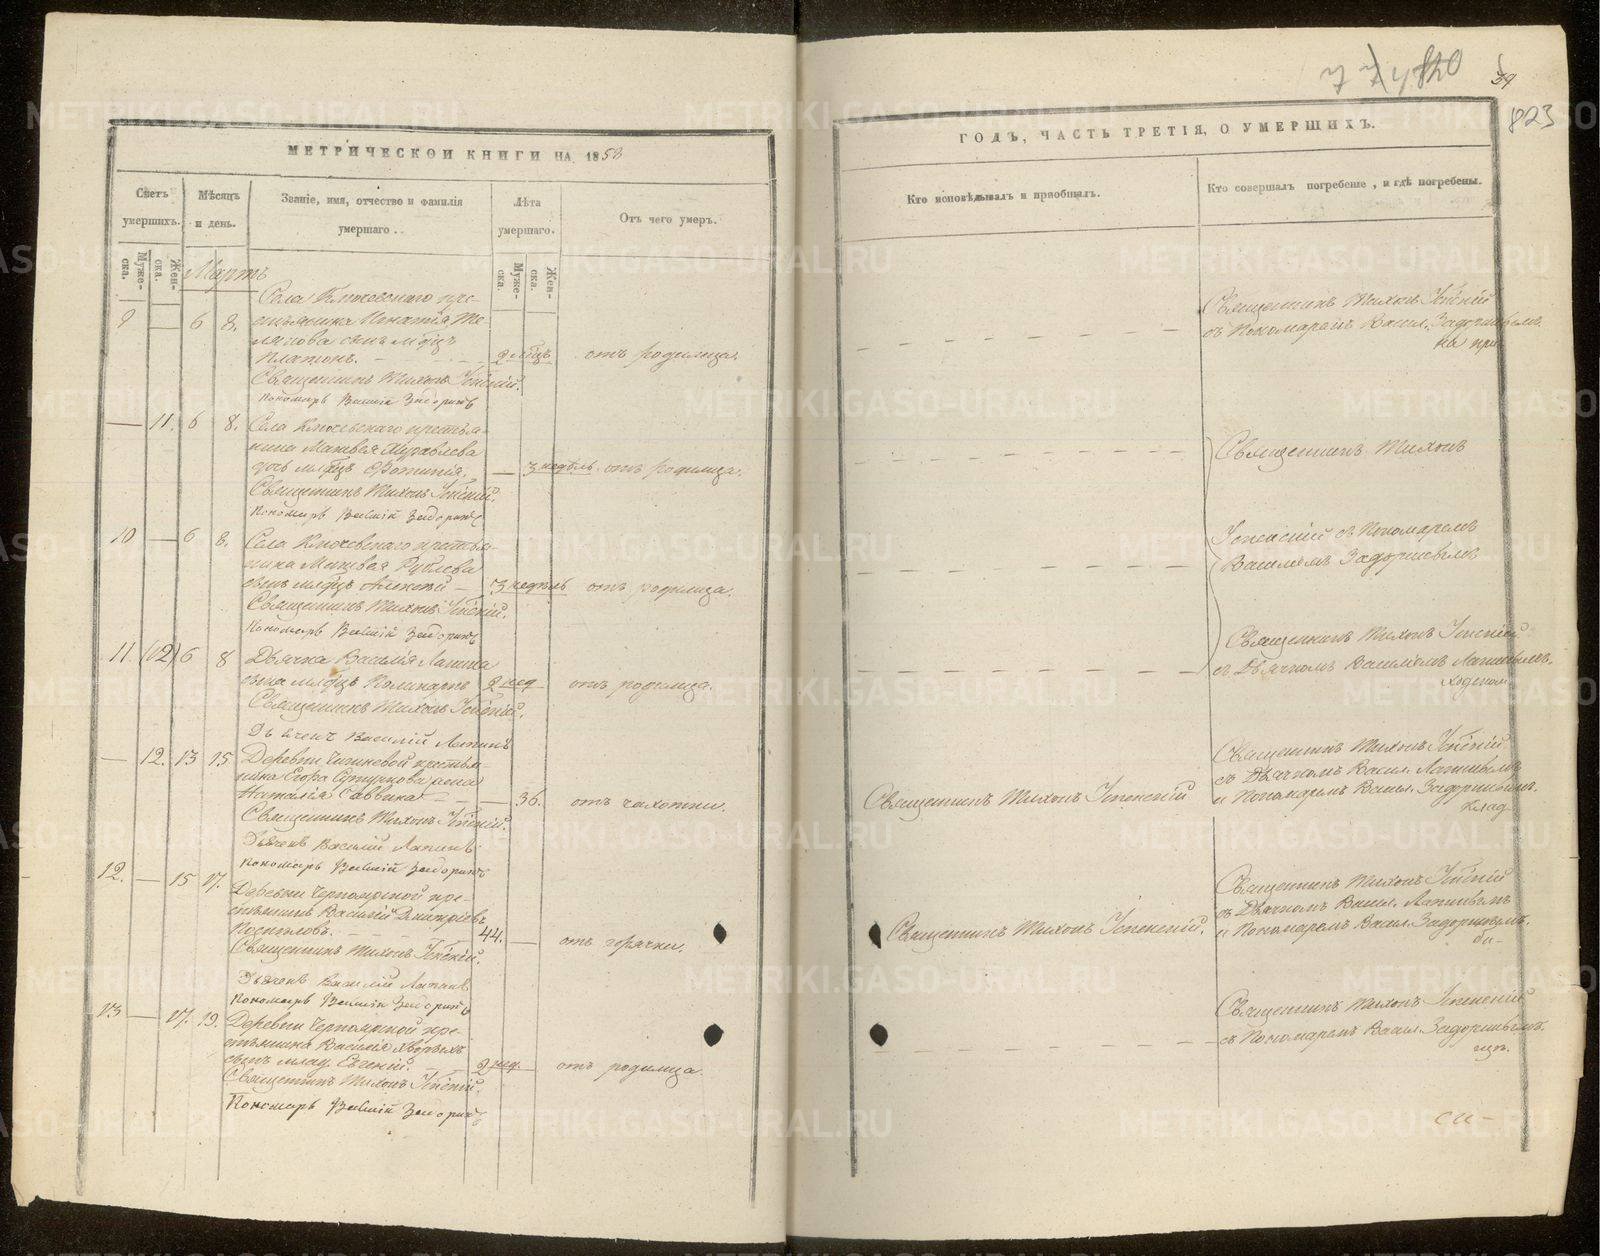 МЕТРИЧЕСКОЙ КНИГИ НА 1858
Счетъ умершихъ.
Муже-ска.
Жен-ска.
Мѣсяцъ и день.
Званіе, имя, отчество и фамилія умершаго.
Лѣта умершаго.
Муже-ска.
Жен-ска.
Отъ чего умеръ.
Мартъ
9 — 6 8.
Села Ключевскаго кре-
стьянина Игнатія
сынъ млдцъ
Платонъ. — 2 мсцъ отъ родимца.
Священникъ Тихонъ Успскій.
Пономарь Василій Задоринъ
— 11. 6 8. Села Ключевскаго крестья-
нина Матвея Журавлева
дочь млдцъ Фотинія. — 3 недѣль отъ родимца.
Священникъ Тихонъ Успскій.
Пономарь Василій Задоринъ
10 — 6 8. Села Ключевскаго крестья-
нина Матвея Рублева
сынъ млдцъ Алексѣй — 3 недѣль отъ родимца.
Священникъ Тихонъ Успскій.
Пономарь Василій Задоринъ
11. (12) 6 8 Дьячка Василія Лапина
сынъ млдцъ 2 нед отъ родимца.
Священникъ Тихонъ Успскій.
Дьячекъ Василій Лапинъ
— 12. 13 15 Деревни крестья-
нина Егора жена
Наталія Саввина — 36. отъ чахотки.
Священникъ Тихонъ Успскій.
Дьячекъ Василій Лапинъ
Пономарь Василій Задоринъ
12. — 15 17. Деревни Черноярской кре-
стьянинъ Василій Дмитріевъ
Поспѣловъ. — 44. — отъ горячки.
Священникъ Тихонъ Успскій.
Дьячекъ Василій Лапинъ
Пономарь Василій Задоринъ
13 — 17. 19. Деревни Черноярской кре-
стьянина Василія Хворыхъ
сынъ млад. Евгеній. 2 нед. — отъ родимца.
Священникъ Тихонъ Успскій.
Пономарь Василій Задоринъ
823
ГОДЪ, ЧАСТЬ ТРЕТІЯ, О УМЕРШИХЪ.
Кто исповѣдывалъ и пріобщалъ.
Кто совершалъ погребеніе, и гдѣ погребены.
Священникъ Тихонъ Успскій
съ Пономаремъ Васил. Задоринымъ.
на при-
Священникъ Тихонъ
Успенскій съ Пономаремъ
Василіемъ Задоринымъ
Священникъ Тихонъ Успенскій
съ Дьячкомъ Василіемъ Лапинымъ.
ходском
Священникъ Тихонъ Успенскій
Священникъ Тихонъ Успскій
съ Дьячкомъ Васил. Лапинымъ
и Пономаремъ Васил. Задоринымъ.
клад-
Священникъ Тихонъ Успенскій.
Священникъ Тихонъ Успскій
съ Дьячкомъ Васил. Лапинымъ
и Пономаремъ Васил. Задоринымъ.
би-
Священникъ Тихонъ Успенскій
съ Пономаремъ Васил. Задоринымъ.
щѣ.
METRIKI.GASO-URAL.RU